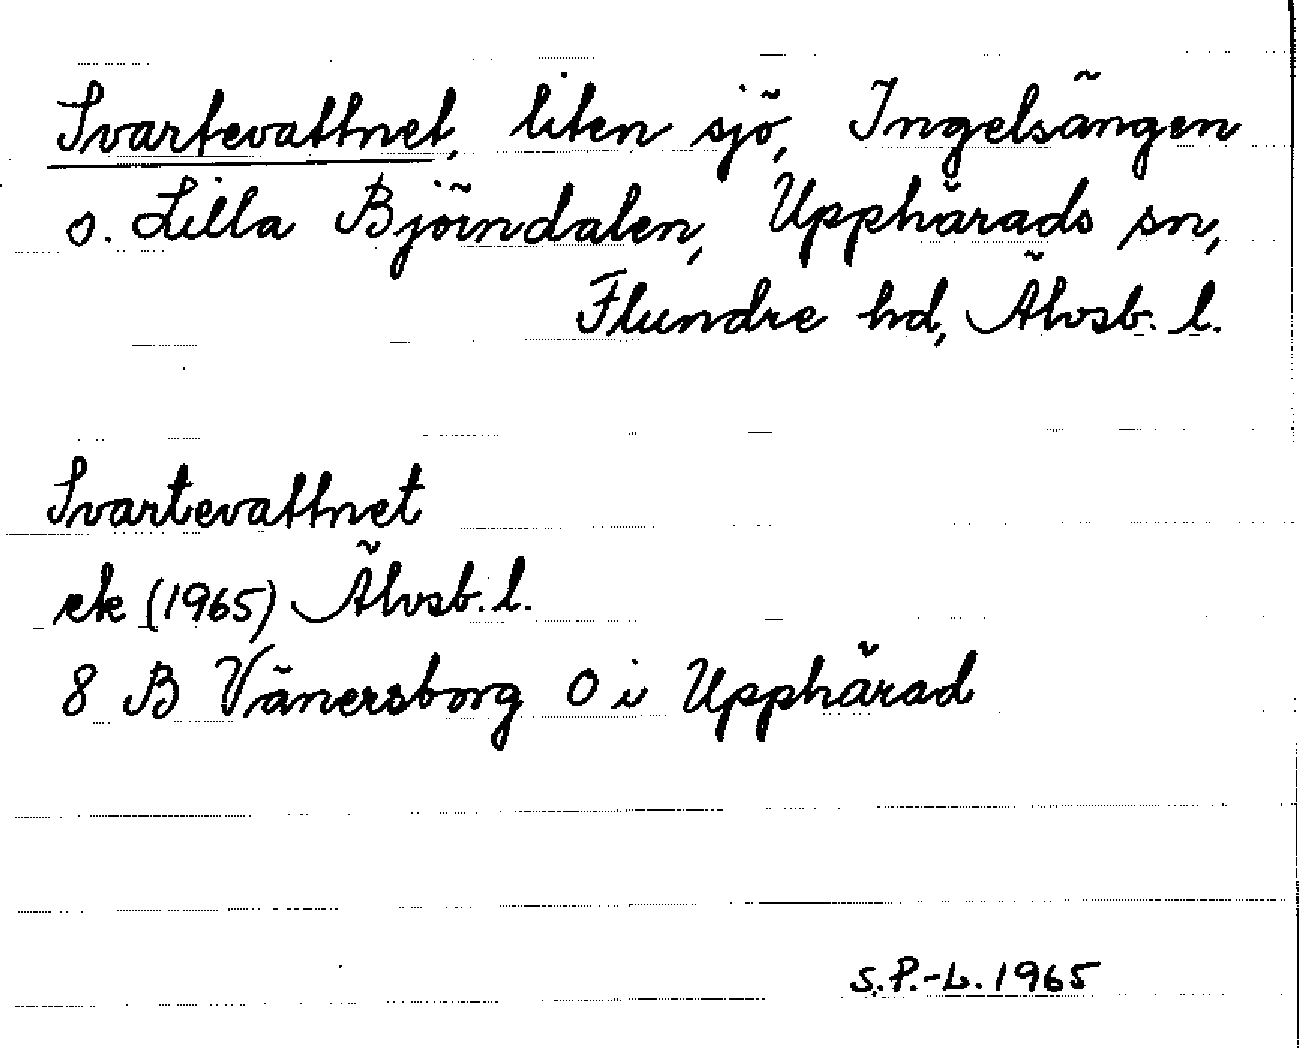 Svartevattnet, liten sjö, Ingelsängen
o. Lilla Björndalen, Upphärads sn,
Flundre hd, Älvsb. l.
Svartevattnet
ek (1965) Älvsb. l.
8 B Vänersborg O i Upphärad
S.P.-L. 1965